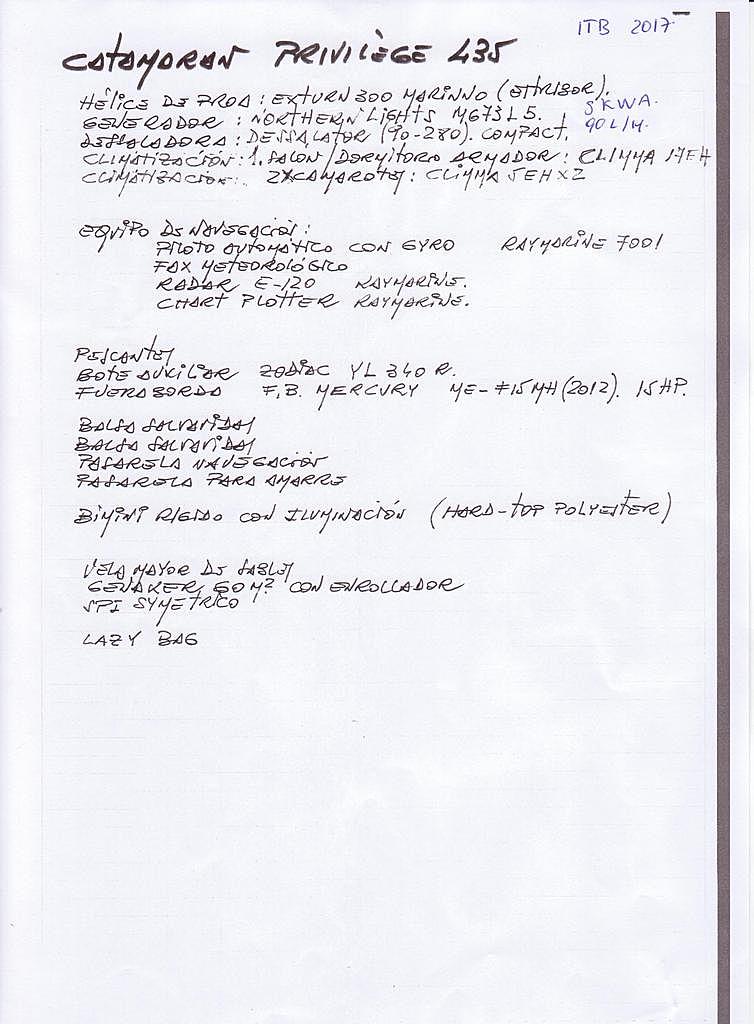 ITB 2017
CATAMARAN PRIVILÈGE 435
HÉLICE DE PROA: EXTURN 300 MARINNO (ESTRIBOR).
GENERADOR: NORTHERN LIGHTS M673L5. 5 KWA.
DESSALADORA: DESSALATOR (90-280). COMPACT. 90 L/H.
CLIMATIZACIÓN: 1. SALON/DORMITORIO ARMADOR: CLIMMA 17EH
CLIMATIZACION: 2X CAMAROTES: CLIMMA 5EHX2
EQUIPO DE NAVEGACIÓN:
PILOTO AUTOMÁTICO CON GYRO RAYMARINE 7001
FAX METEOROLÓGICO
RADAR E-120 RAYMARINE.
CHART PLOTTER RAYMARINE.
PESCANTES
BOTE AUXILIAR ZODIAC YL 340 R.
FUERABORDA F.B. MERCURY ME-F15MH (2012). 15 HP.
BALSA SALVAVIDAS
BALSA SALVAVIDAS
PASARELA NAVEGACIÓN
PASARELA PARA AMARRE
BIMINI RIGIDO CON ILUMINACIÓN (HARD-TOP POLYESTER)
VELA MAYOR DE SABLES
GENAKER 60 M² CON ENROLLADOR
SPI SYMETRICO
LAZY BAG